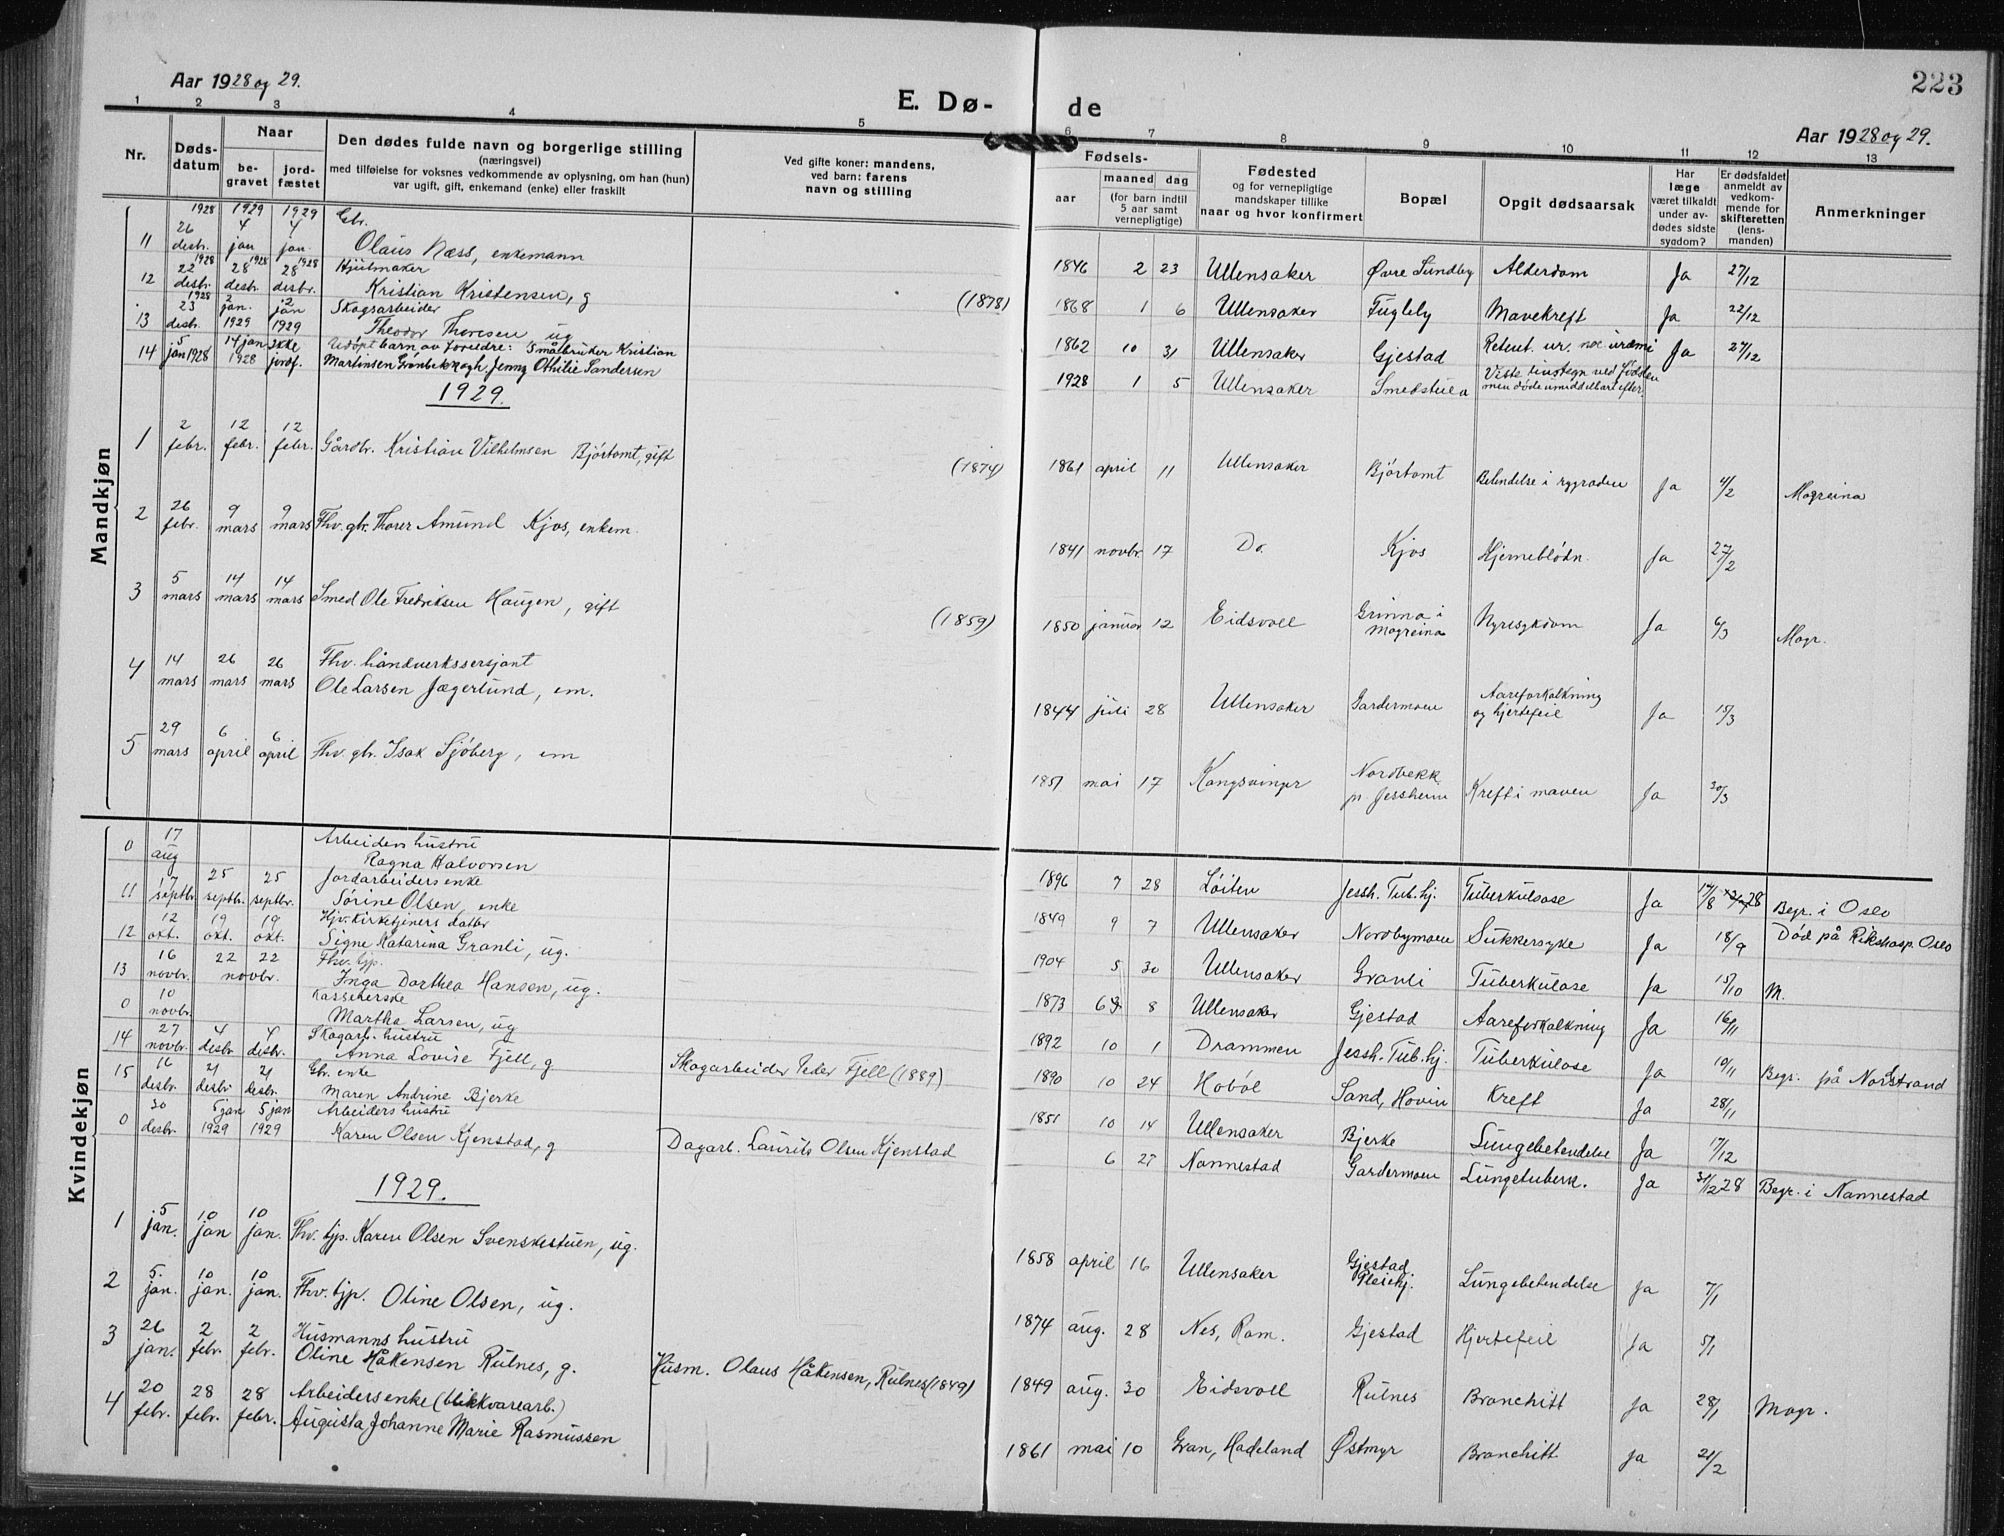 Aar 1928 og 29.
E. Dø-
de
223
Aar 1928 og 29.
1 2 3 4 5 6 7 8 9 10 11 12 13
Nr.
Døds-
datum
Naar
be-
gravet
jord-
fæstet
Den dødes fulde navn og borgerlige stilling
(næringsvei)
med tilføielse for voksnes vedkommende av oplysning, om han (hun)
var ugift, gift, enkemand (enke) eller fraskilt
Ved gifte koner: mandens,
ved barn: farens
navn og stilling
Fødsels-
aar
maaned dag
(for barn indtil
5 aar samt
vernepligtige)
Fødested
og for vernepligtige
mandskaper tillike
naar og hvor konfirmert
Bopæl
Opgit dødsaarsak
Har
læge
været tilkaldt
under av-
dødes sidste
sygdom?
Er dødsfaldet
anmeldt av
vedkom-
mende for
skifteretten
(lens-
manden)
Anmerkninger
Mandkjøn
11 26 desbr. 1928 4 jan 1929 4 jan. 1929 Gbr. Olaus Næss, enkemann 1846 2 23 Ullensaker Øvre Sundby Alderdom Ja 27/12
12 22 desbr. 1928 28 desbr. 1928 28 desbr. 1928 Hjulmaker Kristian Kristensen, g (1878) 1868 1 6 Ullensaker Fugleby Mavekreft Ja 22/12
13 23 desbr. 1928 2 jan. 1929 2 jan 1929 Skogsarbeider Theodor Thoresen ug 1862 10 31 Ullensaker Gjestad Retent. ur. noc uræmi Ja 27/12
14 5 jan 1928 14 jan 1928 ikke jordf. Udöpt barn av foreldre: Småbruker Kristian
Martinsen Grønbekk og h. Jenny Othilie Sandersen 1928 1 5 Ullensaker Smedstua Viste livstegn ved fødslen
men døde umiddelbart efter.
1929.
1 2 febr. 12 febr. 12 febr. Gårdbr. Kristian Vilhelmsen Bjørtomt, gift (1874) 1861 april 11 Ullensaker Bjørtomt Betendelse i rygraden Ja 4/2 Mogreina
2 26 febr. 9 mars 9 mars Fhv. gbr. Thorer Amund Kjos, enkem. 1841 novbr. 17 Do. Kjos Hjerneblødn. Ja 27/2
3 5 mars 14 mars 14 mars Smed Ole Fredriksen Haugen, gift (1859) 1850 januar 12 Eidsvoll Grinna i Mogreina Nyresykdom Ja 6/3 Mogr.
4 14 mars 26 mars 26 mars Fhv. håndverkssersjant
Ole Larsen Jægerlund, em. 1844 juli 28 Ullensaker Gardermoen Aareforkalkning og hjertefeil Ja 15/3
5 29 mars 6 april 6 april Fhv. gbr. Isak Sjøberg, em 1851 mai 17 Kongsvinger Nordbekk pr. Jessheim Kreft i maven Ja 30/3
Kvindekjøn
0 17 aug Arbeiders hustru Ragna Halvorsen 1896 7 28 Löiten Jessh. Tub. hj. Tuberkulose Ja 17/8 28 Begr. i Oslo
11 17 septbr. 25 septbr. 25 septbr. Jordarbeiders enke Sørine Olsen, enke 1849 9 7 Ullensaker Nordbymoen Sukkersyke Ja 18/9 Död på Rikshosp. Oslo
12 12 okt. 19 okt. 19 okt. Hjv. kirketjeners datter Signe Katarina Granli, ug. 1904 5 30 Ullensaker Granli Tuberkulose Ja 15/10 M.
13 16 novbr. 22 22 novbr. Fhv. tjp. Inga Dorthea Hansen, ug. 1873 6 8 Ullensaker Gjestad Aareforkalkning Ja 16/11
0 10 novbr. Kassererske Martha Larsen, ug 1892 10 1 Drammen Jessh. Tub. hj. Tuberkulose Ja 10/11 Begr. på Nordstrand
14 27 novbr. 4 desbr. 4 desbr. Skogarb. hustru Anna Lovise Fjell, g Skogarbeider Peder Fjell (1889) 1890 10 24 Hobøl Sand, Hovin Kreft Ja 28/11
15 16 desbr. 21 desbr. 21 desbr. Gbr. enke Maren Andrine Bjerke 1851 10 14 Ullensaker Bjerke Lungebetendelse Ja 17/12
0 30 desbr. 5 jan 1929 5 jan 1929 Arbeiders hustru Karen Olsen Kjenstad, g Dagarb. Laurits Olsen Kjenstad 6 27 Nannestad Gardermoen Lungetuberk. Ja 31/12 28 Begr. i Nannestad
1929.
1 5 jan. 10 jan 10 jan. Fhv. tjp. Karen Olsen Svenskestuen, ug. 1858 april 16 Ullensaker Gjestad Pleiehj. Lungebetendelse Ja 7/1
2 5. jan. 10 jan. 10 jan. Fhv. tjp. Oline Olsen, ug. 1874 aug. 28 Nes, Rom. Gjestad Hjertefeil Ja 5/1
3 26 jan. 2 febr. 2 febr. Husmanns hustru
Oline Håkensen Rulnes, g. Husm. Olaus Håkensen, Rulnes (1849) 1849 aug. 30 Eidsvoll Rulnes Bronchitt Ja 28/1 Mogr.
4 20 febr. 28 febr. 28 febr. Arbeidersenke (blikkvarearb.)
Augusta Johanne Marie Rasmussen 1861 mai 10 Gran, Hadeland Østmyr Bronchitt Ja 21/2